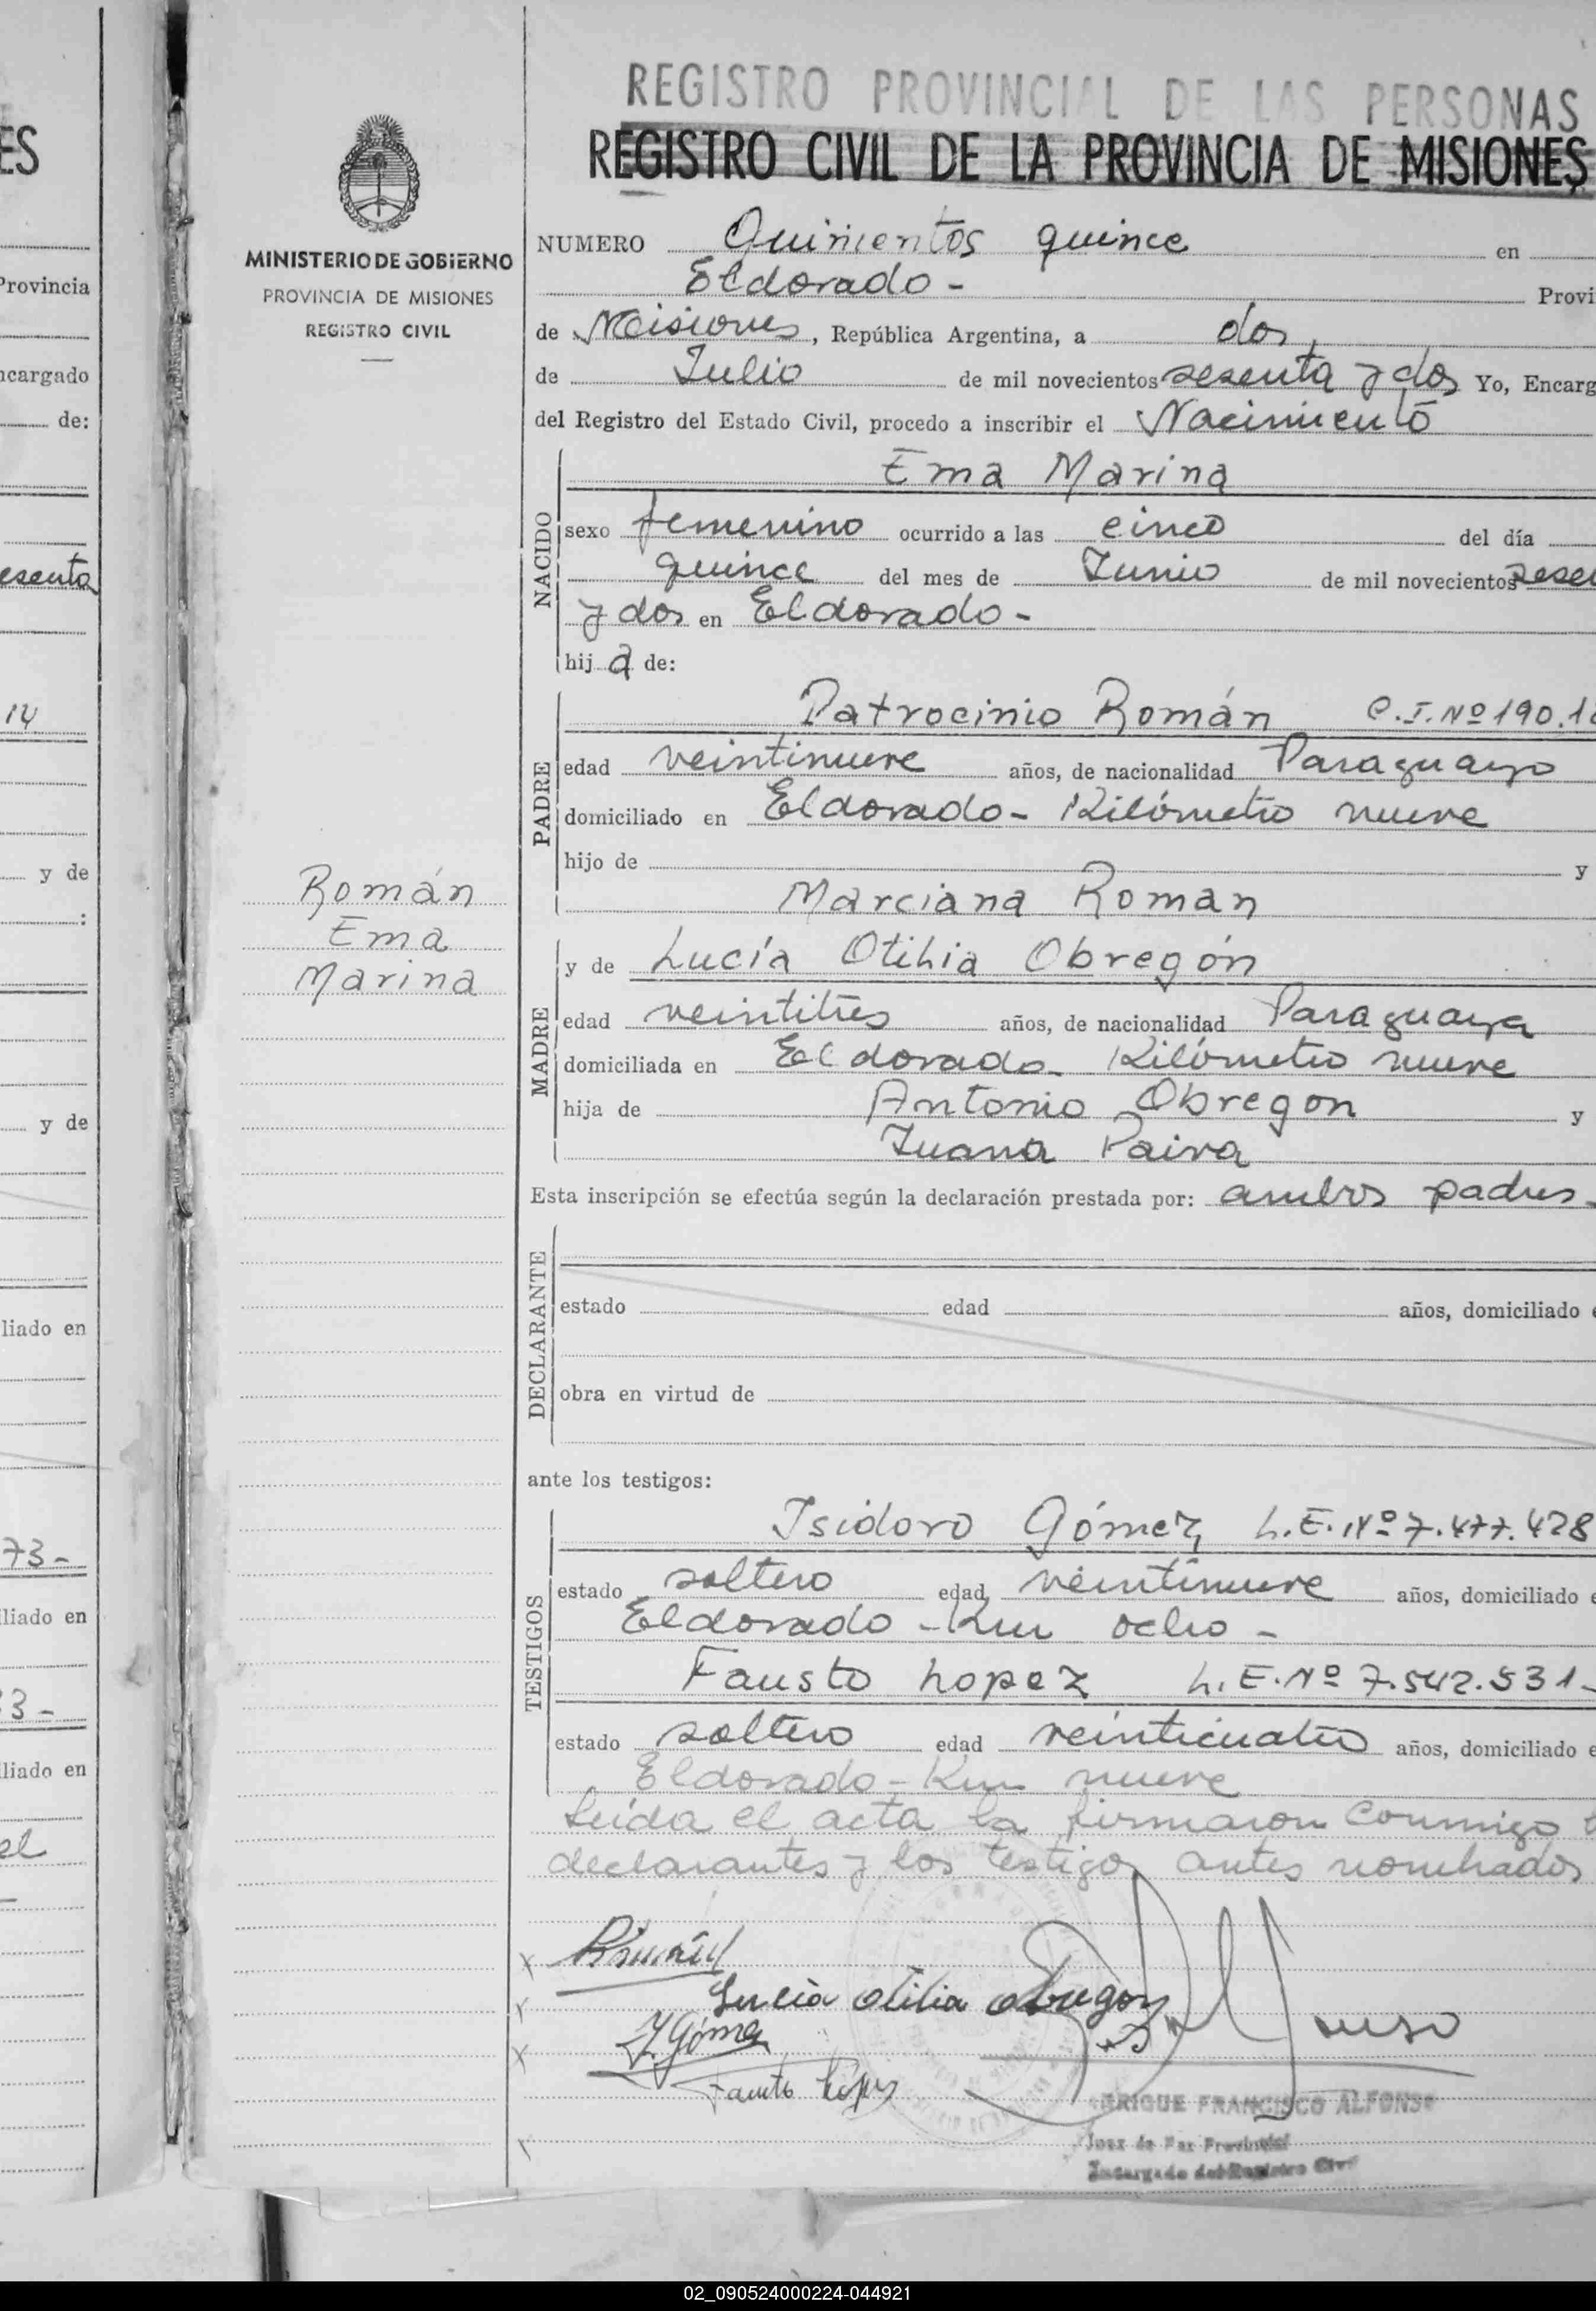 REGISTRO PROVINCIAL DE LAS PERSONAS
REGISTRO CIVIL DE LA PROVINCIA DE MISIONES
MINISTERIO DE GOBIERNO
PROVINCIA DE MISIONES
REGISTRO CIVIL
NUMERO Quinientos quince en
Eldorado - Provi
de Misiones, República Argentina, a dos,
de Julio de mil novecientos sesenta y dos Yo, Encarg
del Registro del Estado Civil, procedo a inscribir el Nacimiento
Ema Marina
NACIDO
sexo femenino ocurrido a las cinco del día
quince del mes de Junio de mil novecientos sesen
y dos en Eldorado -
hija de:
PADRE
Patrocinio Román C.I. Nº 190.1
edad veintinueve años, de nacionalidad Paraguayo
domiciliado en Eldorado - Kilómetro nueve
hijo de y
Marciana Roman
Román
Ema
Marina
MADRE
y de Lucía Otilia Obregón
edad veintitrés años, de nacionalidad Paraguaya
domiciliada en Eldorado - Kilómetro nueve
hija de Antonio Obregon y
Juana Paiva
Esta inscripción se efectúa según la declaración prestada por: ambos padres -
DECLARANTE
estado edad años, domiciliado e
obra en virtud de
ante los testigos:
TESTIGOS
Isidoro Gómez L.E. Nº 7.477.428
estado soltero edad veintinueve años, domiciliado e
Eldorado - Km ocho -
Fausto Lopez L.E. Nº 7.542.531 -
estado soltero edad veinticuatro años, domiciliado e
Eldorado - Km nueve
Leida el acta la firmaron conmigo
declarantes y los testigos antes nombrados
Lucia Otilia Obregon
I. Gómez
Fausto López
RIQUE FRANCISCO ALFONSO
Juez de Paz Provincial
Encargado del Registro Civil
ES
Provincia
ncargado
de:
esenta
14
y de
:
y de
liado en
73 -
liado en
3 -
liado en
el
02_090524000224-044921